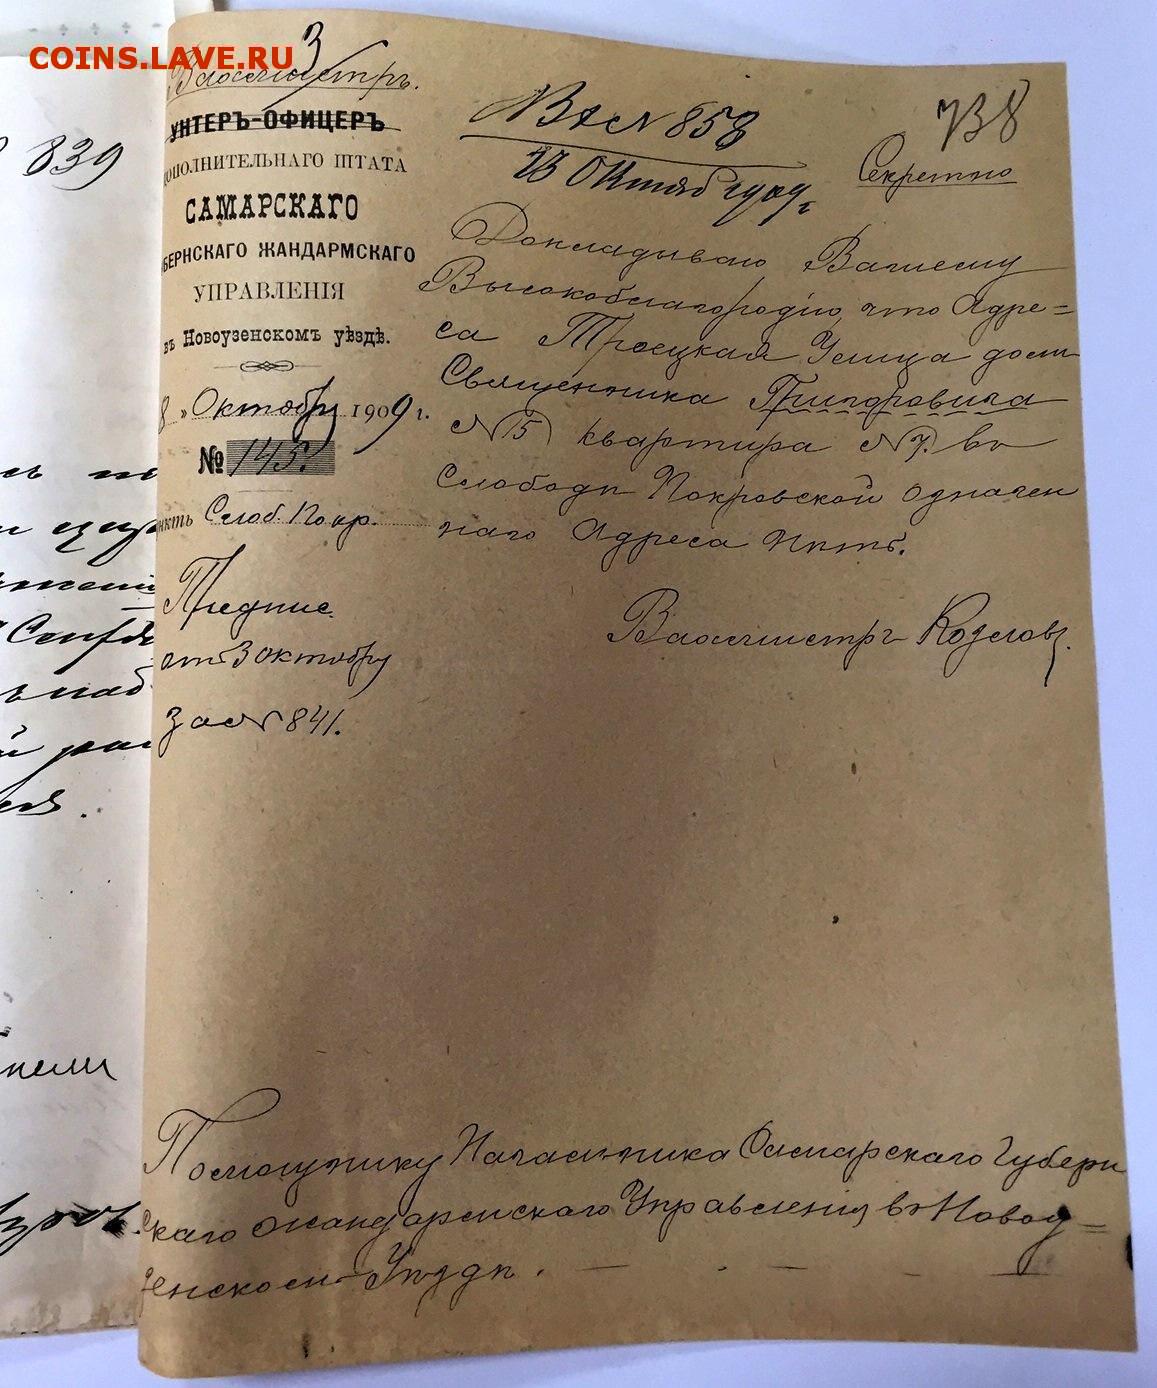 COINS.LAVE.RU
3
Вахмистръ.
УНТЕРЪ-ОФИЦЕРЪ
ДОПОЛНИТЕЛЬНАГО ШТАТА
САМАРСКАГО
БЕРНСКАГО ЖАНДАРМСКАГО
УПРАВЛЕНІЯ
въ Новоузенскомъ уѣздѣ.
8 " Октября 1909 г.
№ 143.
нктъ Слоб. Покр.
Предпис.
от 3 октября
за № 841.
839
Вх № 858
13 Октяб 1909 г.
738
Секретно
Докладываю Вашему
Высокоблагородію, что Адре=
са Троецкая Улица домъ
Священника Григоровича
№ 15 квартира № 7. въ
Слободѣ Покровской означен
наго Адреса нѣтъ.
Вахмистръ Козловъ.
Помощнику Начальника Самарскаго Губерн
скаго Жандармскаго Управленія въ Новоу=
зенскомъ Уѣздѣ.